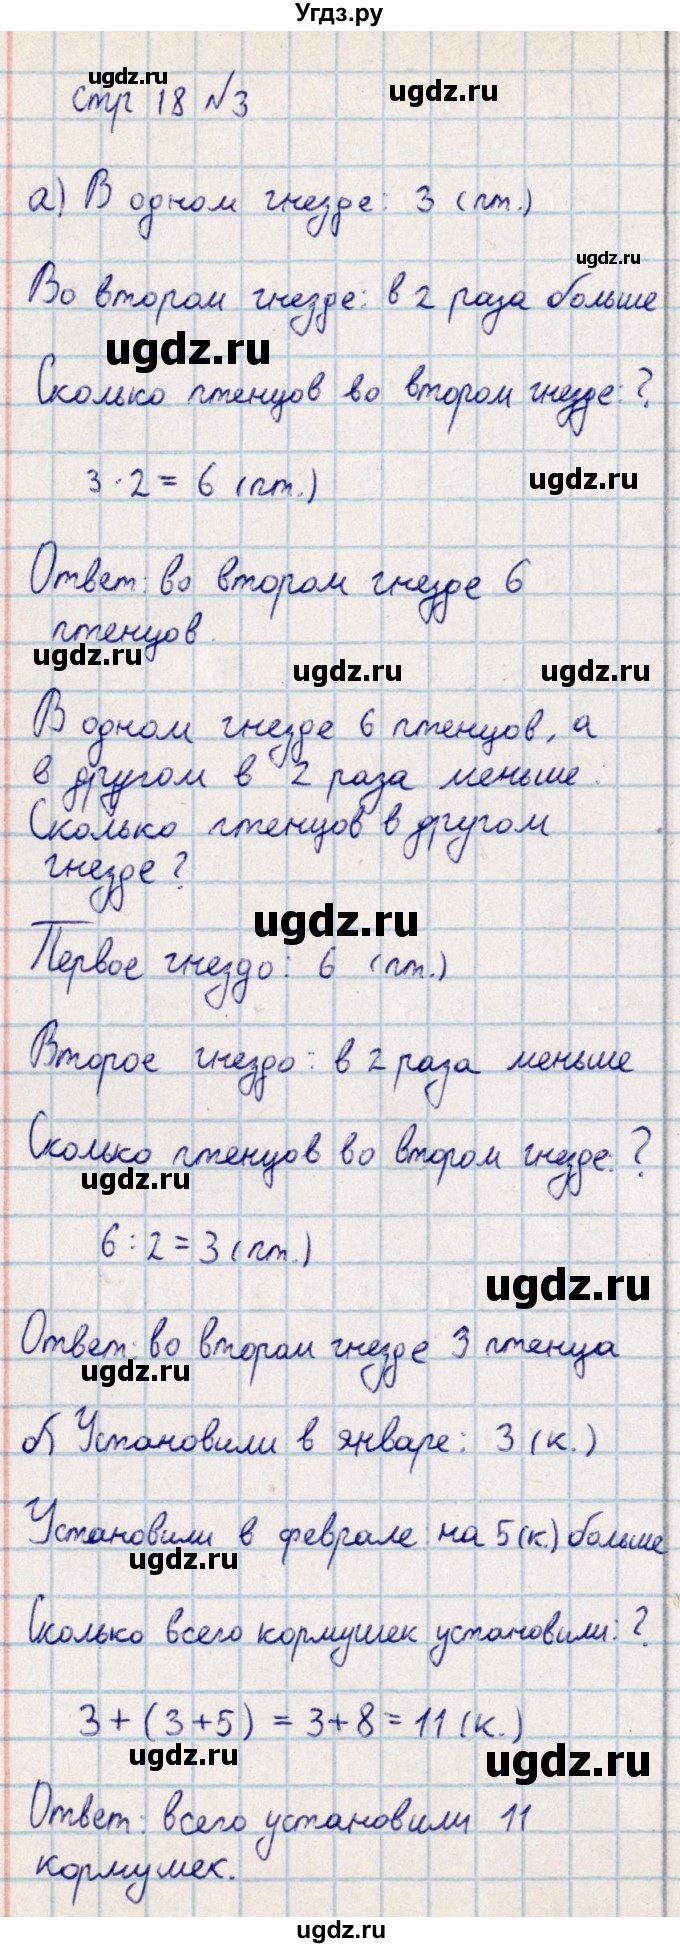 Угдз.ру
ugdz.ru
ugdz.ru
стр 18 №3
а) В одном гнезде: 3 (пт.)
ugdz.ru
Во втором гнезде: в 2 раза больше
ugdz.ru
Сколько птенцов во втором гнезде: ?
3 · 2 = 6 (пт.)
ugdz.ru
Ответ: во втором гнезде 6
птенцов.
ugdz.ru
ugdz.ru
ugdz.ru
В одном гнезде 6 птенцов, а
в другом в 2 раза меньше.
Сколько птенцов в другом
гнезде?
ugdz.ru
Первое гнездо: 6 (пт.)
Второе гнездо: в 2 раза меньше
Сколько птенцов во втором гнезде: ?
ugdz.ru
6 : 2 = 3 (пт.)
ugdz.ru
Ответ: во втором гнезде 3 птенца
ugdz.ru
б) Установили в январе: 3 (к.)
Установили в феврале на 5 (к.) больше
ugdz.ru
Сколько всего кормушек установили: ?
3 + (3 + 5) = 3 + 8 = 11 (к.)
ugdz.ru
ugdz.ru
Ответ: всего установили 11
кормушек.
ugdz.ru